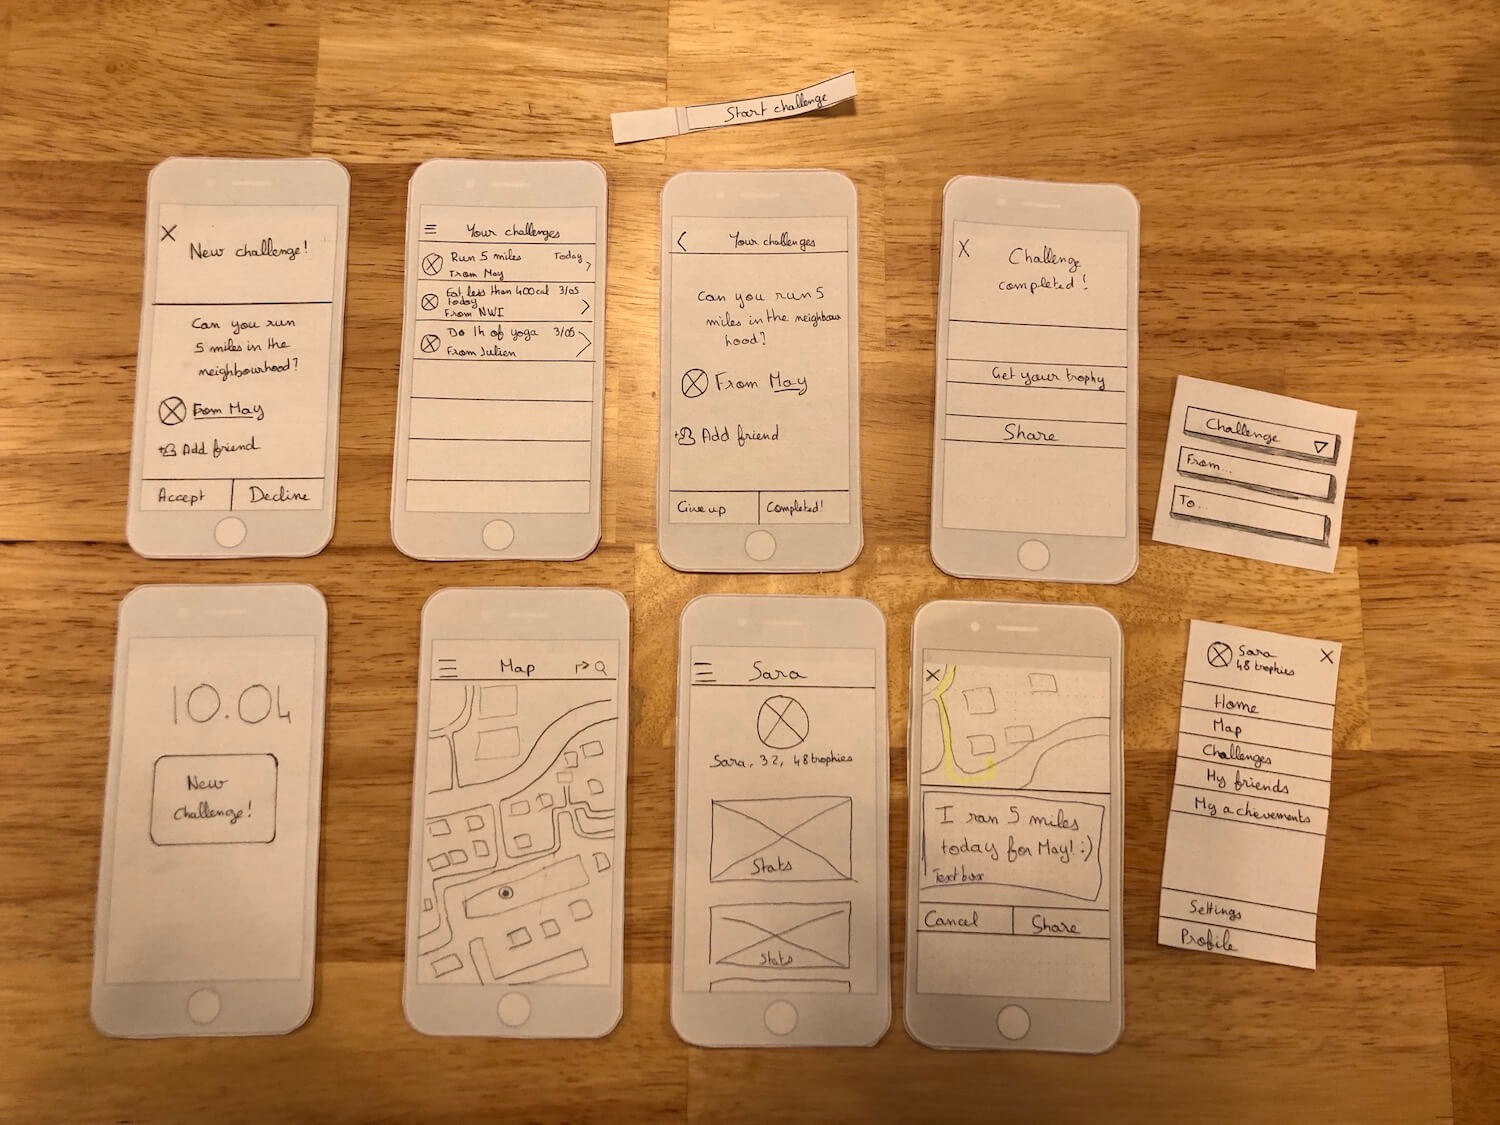 Start challenge
New challenge!
Can you run
5 miles in the
neighbourhood?
From May
Add friend
Accept
Decline
Your challenges
Run 5 miles
Today
From May
Eat less than 400cal
3/05
today
From NWI
Do 1h of yoga
3/05
From Julien
Your challenges
Can you run 5
miles in the neighbour
hood?
From May
Add friend
Give up
Completed!
Challenge
completed!
Get your trophy
Share
Challenge
From...
To...
10.04
New
challenge!
Map
Sara
Sara, 32, 48 trophies
Stats
Stats
I ran 5 miles
today for May! :)
Text box
Cancel
Share
Sara
48 trophies
Home
Map
Challenges
My friends
My achievements
Settings
Profile